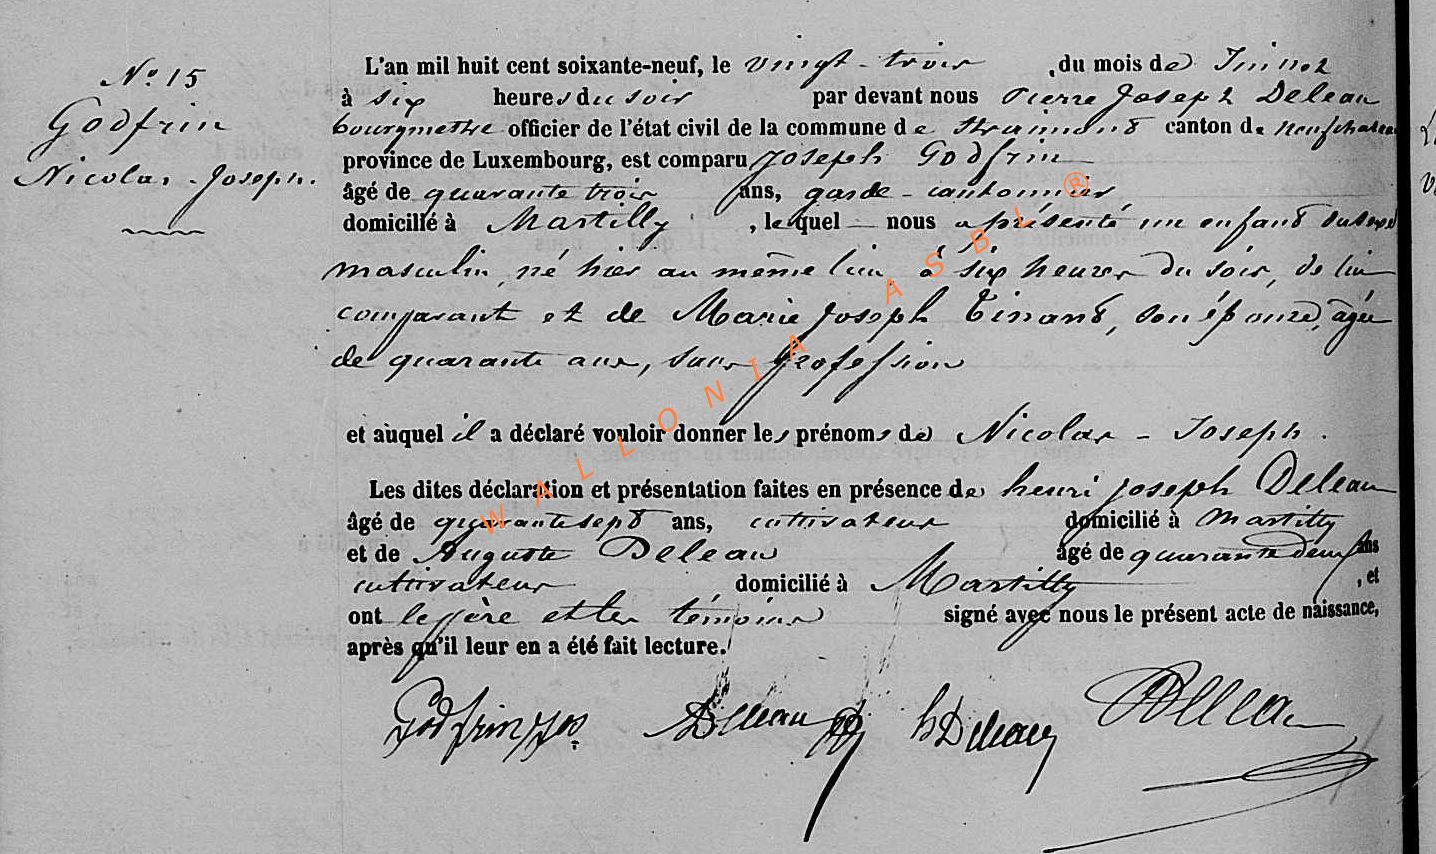 Nº 15
Godfrin
Nicolas-Joseph.
L'an mil huit cent soixante-neuf, le vingt-trois du mois de
à six heures du soir par devant nous Pierre Joseph Deleau
bourgmestre officier de l'état civil de la commune de Straimont canton de neufchateau
province de Luxembourg, est comparu Joseph Godfrin
âgé de quarante trois ans, garde-cantonnier
domicilié à Martilly, lequel nous a présenté un enfant du sexe
masculin, né hier au même lieu à six heures du soir, de lui
comparant et de Marie Joseph Tinant, son épouse, âgée
de quarante ans, sans profession
et auquel il a déclaré vouloir donner les prénoms de Nicolas-Joseph.
Les dites déclaration et présentation faites en présence de henri joseph Deleau
âgé de quarante sept ans, cultivateur domicilié à Martilly
et de Auguste Deleau âgé de quarante deux ans
cultivateur domicilié à Martilly, et
ont le père et les témoins signé avec nous le présent acte de naissance,
après qu'il leur en a été fait lecture.
Godfrin Jos ADeleau hDeleau PDeleau
WALLONIA ASBL ®